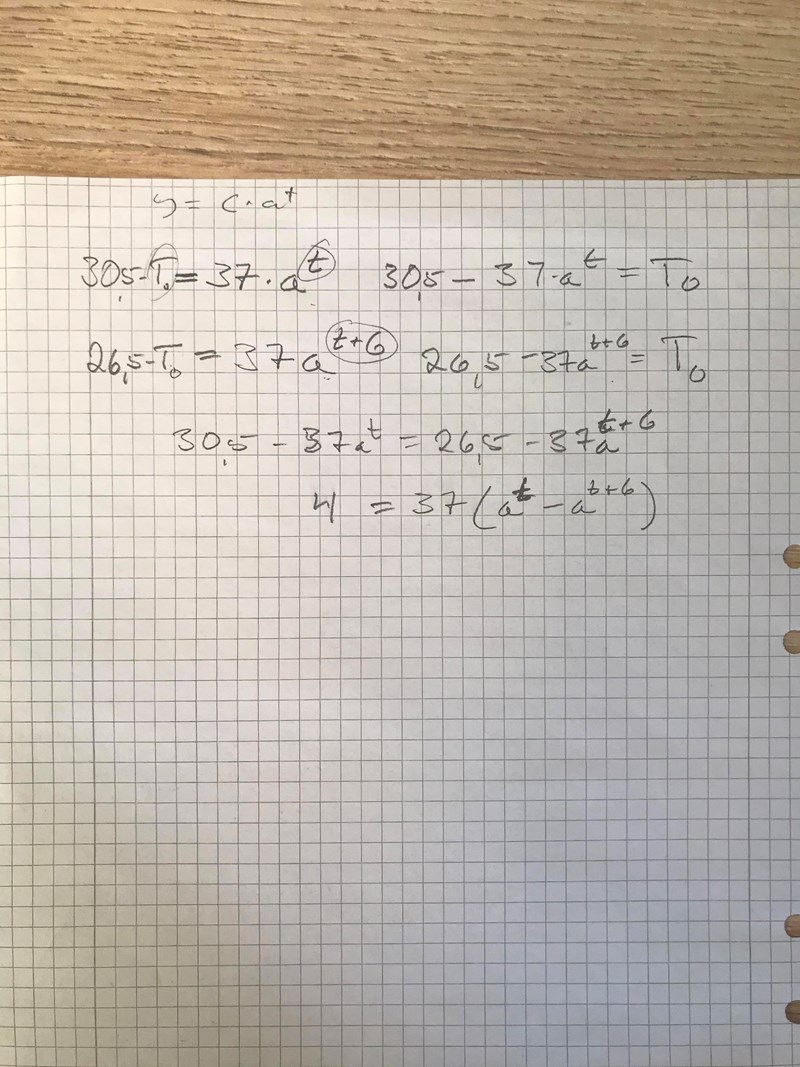 y = C · a^t
30,5 - T₀ = 37 · a^t 30,5 - 37 · a^t = T₀
26,5 - T₀ = 37a^(t+6) 26,5 - 37a^(t+6) = T₀
30,5 - 37a^t = 26,5 - 37a^(t+6)
4 = 37(a^t - a^(t+6))